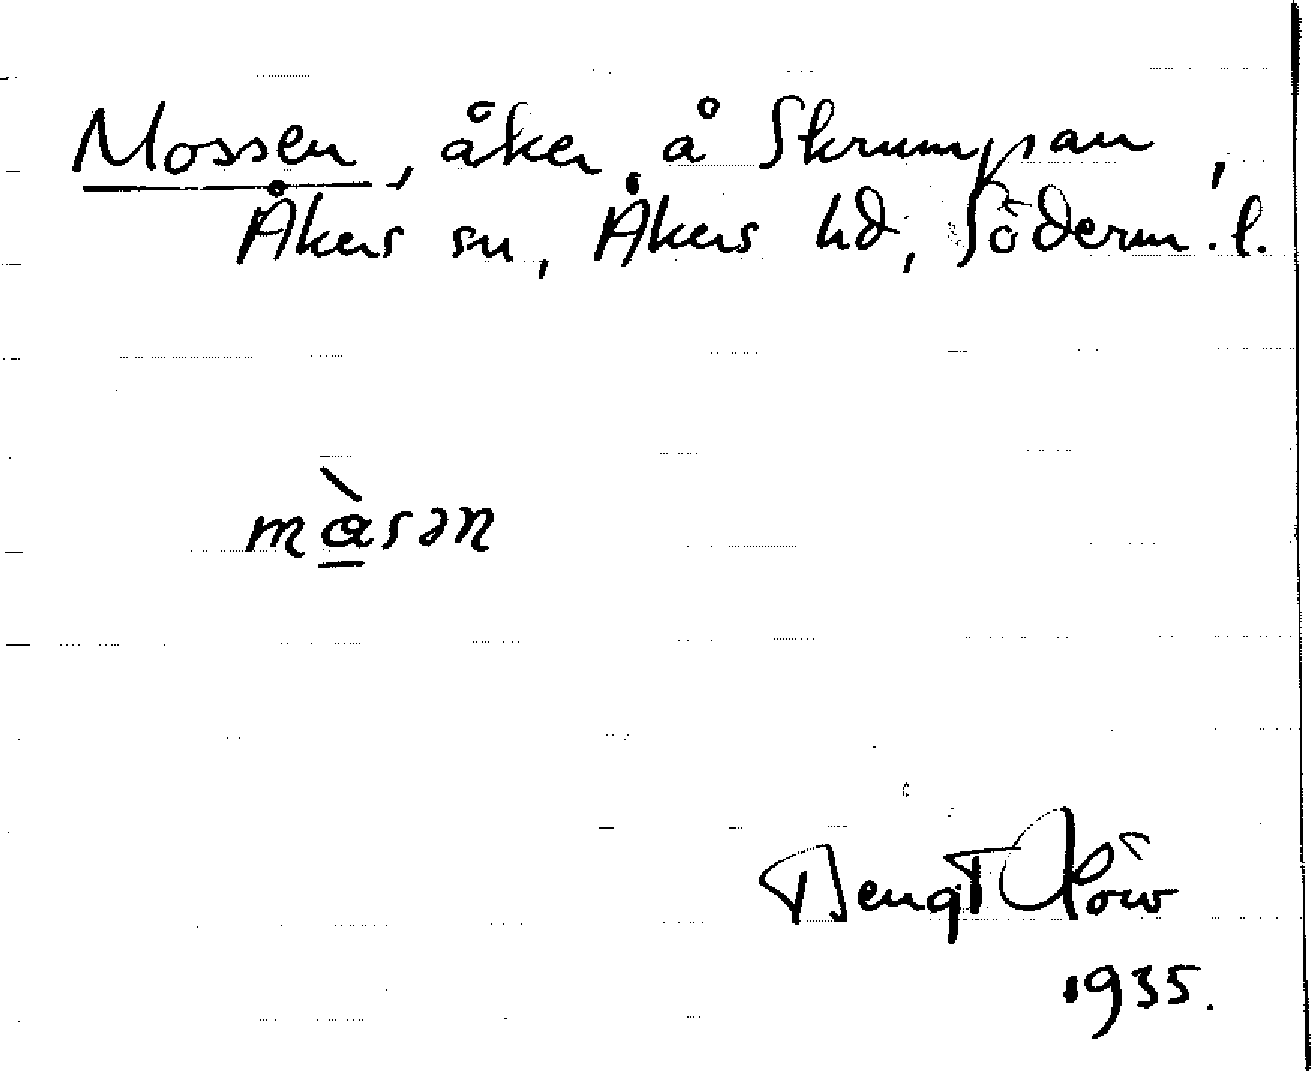 Mossen, åker å Skrumpan,
Åkers sn, Åkers hd, Söderm. l.
màsən
Bengt
1935.